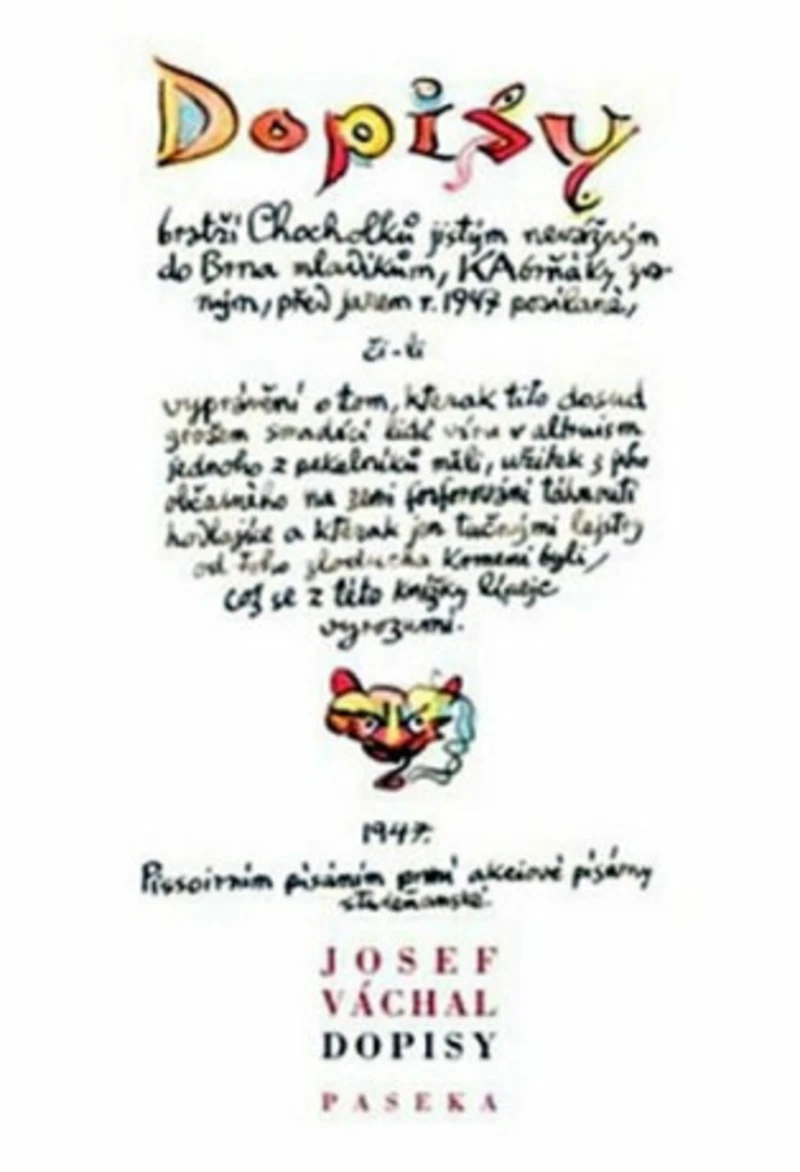 Dopisy
bratří Chocholků jistým nevážným
do Brna mladíkům, KAbrňáky zva-
ným, před jarem r. 1947 posílané,
či-li
vyprávění o tom, kterak tito dosud
grošem smadící lidé víru v altruism
jednoho z pekelníků měli, užitek z jeho
občasného na zemi fosforování táhnouti
hodlajíce a kterak jen tučnými lejstry
od toho zloducha krmeni byli,
což se z této knížky lépeje
vyrozumí.
1947.
Pissoirním písáním první akciové písárny
studeňanské.
JOSEF
VÁCHAL
DOPISY
PASEKA